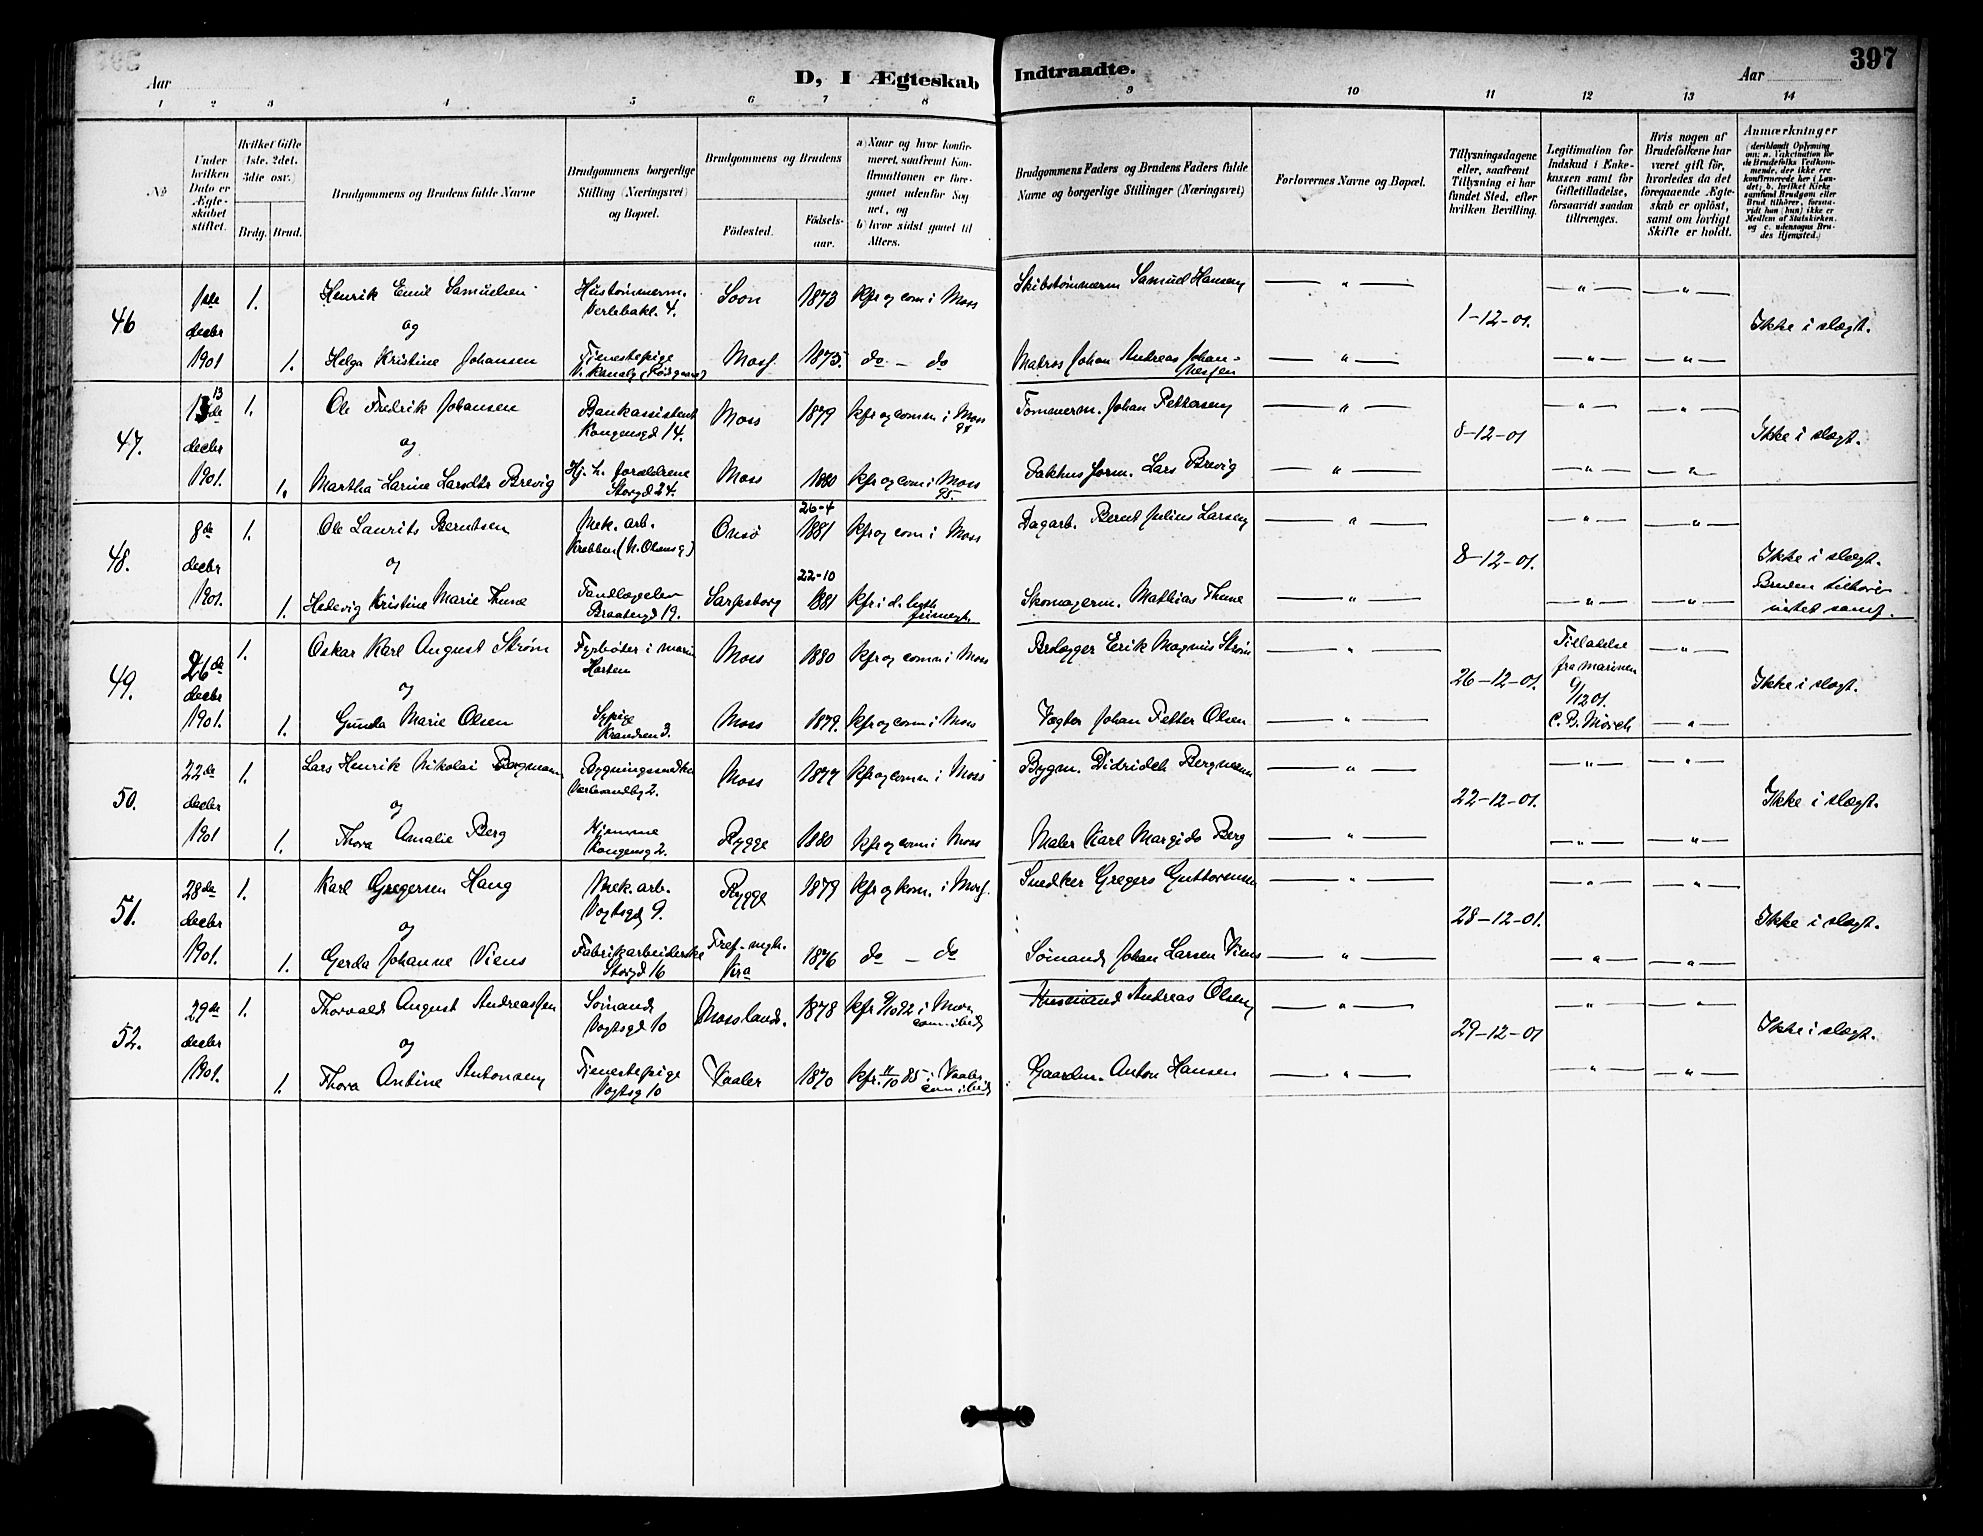 397
Aar
D, I Ægteskab Indtraadte.
Aar
1 2 3 4 5 6 7 8 9 10 11 12 13 14
No
Under hvilken Dato er Ægteskabet stiftet.
Hvilket Gifte (1ste. 2det. 3die osv.)
Brdg. Brud.
Brudgommens og Brudens fulde Navne
Brudgommens borgerlige Stilling (Næringsvei) og Bopæl.
Brudgommens og Brudens
Födested.
Födselsaar.
a) Naar og hvor konfirmeret, saafremt Konfirmationen er foregaaet udenfor Sognet, og
b) hvor sidst gaaet til Alters.
Brudgommens Faders og Brudens Faders fulde Navne og borgerlige Stillinger (Næringsvei)
Forlovernes Navne og Bopæl.
Tillysningsdagene eller, saafremt Tillysning ei har fundet Sted, efter hvilken Bevilling.
Legitimation for Indskud i Enkekassen samt for Giftetilladelse, forsaavidt saadan tiltrænges.
Hvis nogen af Brudefolkene har været gift för, hvorledes da det foregaaende Ægteskab er oplöst, samt om lovligt Skifte er holdt.
Anmærkninger
(deriblandt Oplysning om: a. Vakcination for de Brudefolks Vedkommende, der ikke ere konfirmerede her i Landet; b. hvilket Kirkesamfund Brudgom eller Brud tilhörer, forsaavidt han (hun) ikke er Medlem af Statskirken, og c. udensogns Brudes Hjemsted.)
46
1ste decbr 1901
1. Henrik Emil Samuelsen Hustømmerm. Verlebakk. 4. Soon 1873 kfr og com i Moss Skibstømmerm Samuel Hansen
og
1-12-01. Ikke i slægt.
1. Helga Kristine Johansen Tjenestepige Moss 1875. do – do Matros Johan Andreas Johannessen
47.
13de decbr 1901.
1. Ole Fredrik Johansen Bankassistent Kongensgd 14. Moss 1879 kfr og com i Moss Tømmerm. Johan Pettersen
og
8-12-01 Ikke i slægt.
1. Martha Larine Larsdtr Brevig Hj. h. forældrene Storgd 24. Moss 1880 kfr og com i Moss 95. Pakhusform. Lars Brevig
48.
8de decbr 1901.
1. Ole Laurits Berntsen Mek. arb. Krabben (N. Olsensg) Onsø 26-4 1881 kfr og com i Moss Dagarb. Bernt Julius Larsen
og
8-12-01. Ikke i slægt.
1. Hedevig Kristine Marie Thune Braatengd 19. Sarpsborg 22-10 1881 kfr i d. luth frimegh. Skomagerm. Mathias Thune
Bruden tilhører
49.
26de decbr 1901.
1. Oskar Karl August Strøm Fyrbøter i marin Horten Moss 1880 kfr og com i Moss Brolægger Erik Magnus Strøm
Tilladelse fra marinen
og
26-12-01. Ikke i slægt.
1. Gunda Marie Olsen Sypige 3. Moss 1879. kfr og com i Moss Vægter Johan Petter Olsen
50.
22de decbr 1901
1. Lars Henrik Nikolai Bergmann Bygningssnedker Moss 1877 kfr og com i Moss Bygm. Didrich Bergmann
og
22-12-01. Ikke i slægt.
1. Thora Amalie Berg Hjemme Kongensg 2. Rygge 1880 kfr og com i Moss Maler Karl Margido Berg
51.
28de decbr 1901.
1. Karl Gregersen Haug Mek. arb. Vogtsgd 9. Rygge 1879 kfr og kom. i Moss. Snedker Gregers Guttormsen
og
28-12-01. Ikke i slægt.
1. Gerda Johanne Viens Fabrikarbeiderske Storgd 16 Kra 1876 do – do Sømand Johan Larsen Viens
52.
29de decbr 1901.
1. Thorvald August Andreassen Sømand Vogtsgd 10 Mosslands. 1878 kfr 9/10 92 i Moss com ibid Husmand Andreas Olsen
og
29-12-01 Ikke i slægt.
1. Thora Antine Antonsen Tjenestepige Vogtsg 10 Vaaler 1870 kfr. 11/10 85 i Vaaler com ibid Gaardm. Anton Hansen